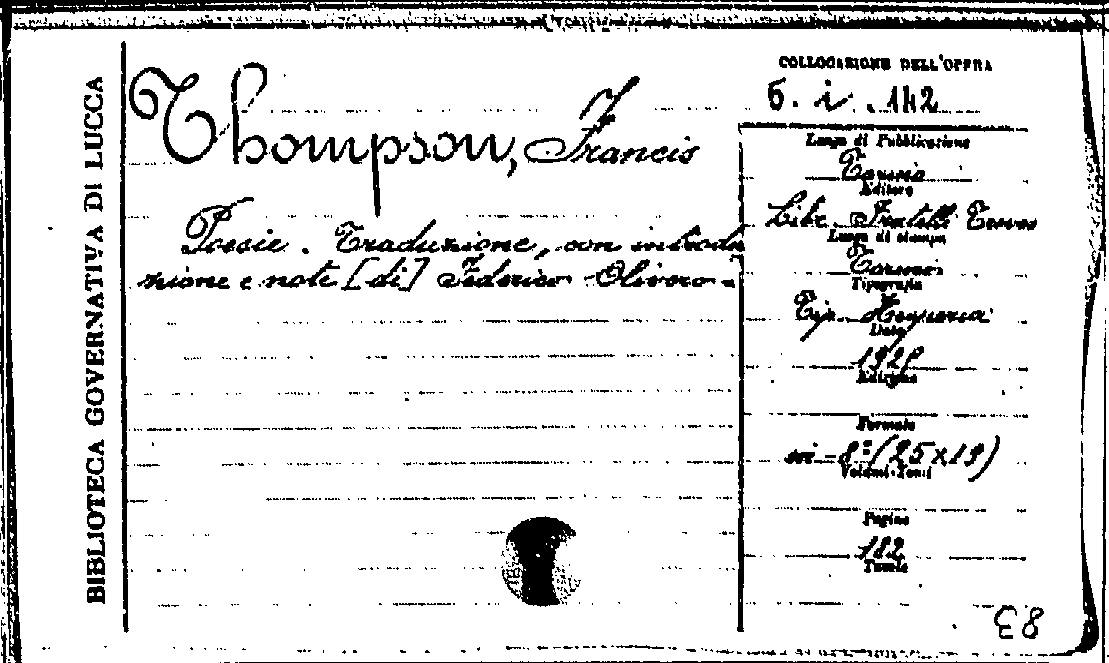 BIBLIOTECA GOVERNATIVA DI LUCCA
COLLOCAZIONE DELL'OPERA
6. i. 142
Thompson, Francis
Poesie. Traduzione, con introdu
zione e note [di] Federico Olivero -
Luogo di Pubblicazione
Torino
Editore
Libr. Fratelli Treves
Luogo di stampa
Torino
Tipografia
Tip.
Data
Edizione
Formato
in-8º (25x19)
Volumi-Tomi
Pagine
182
Tavole
E8